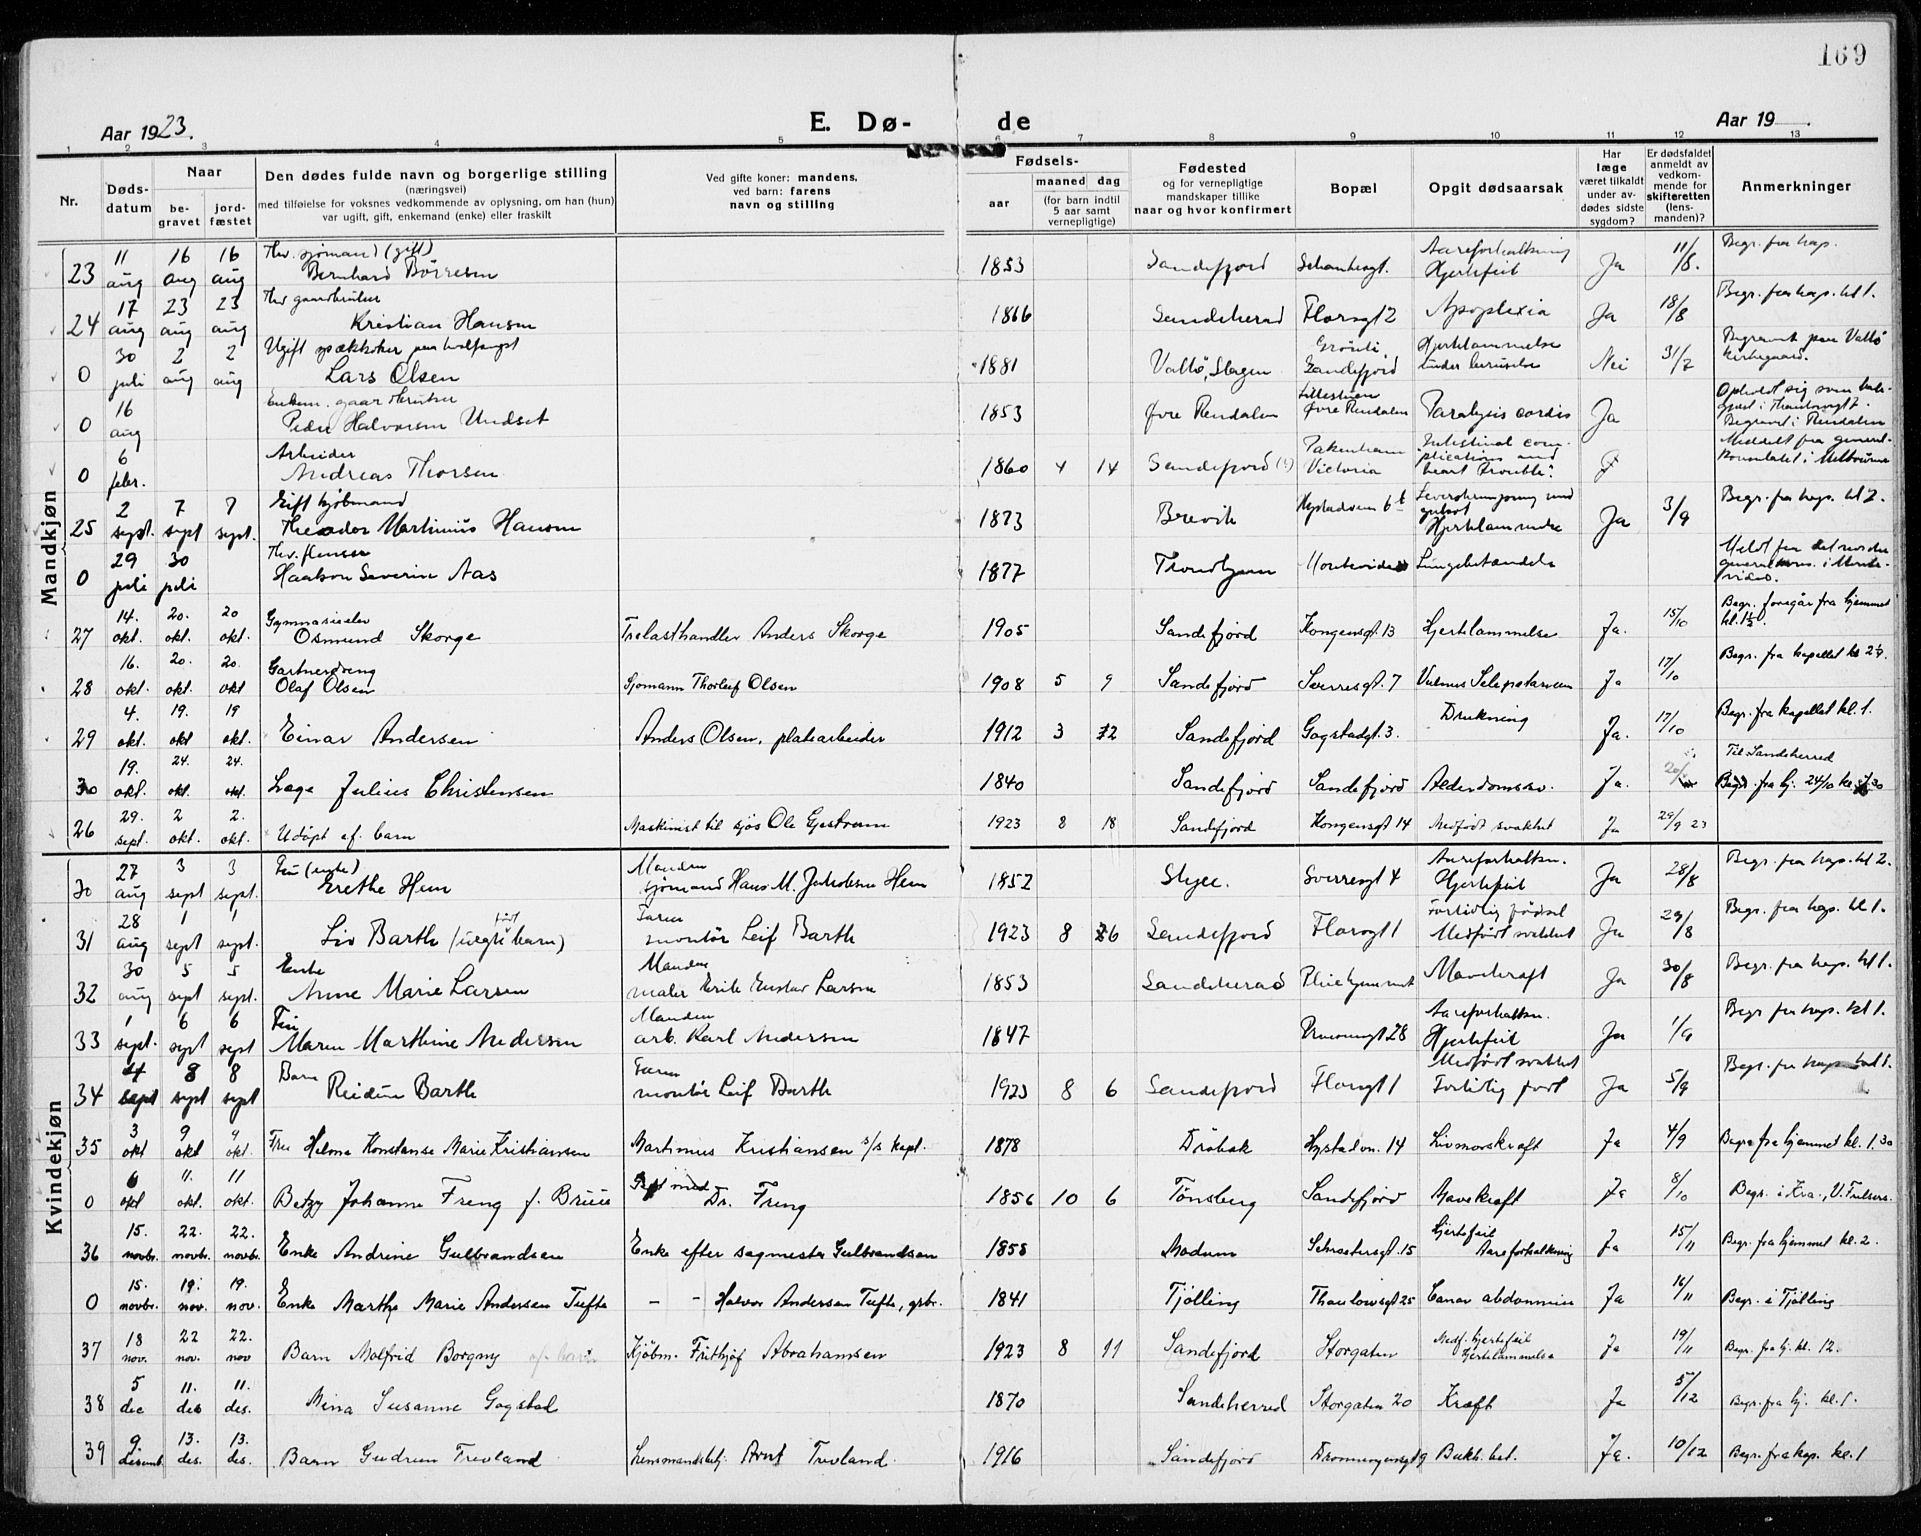 169
Aar 1923.
E. Dø- de
Aar 19
1 2 3 4 5 6 7 8 9 10 11 12 13
Nr.
Døds-datum
Naar
be-gravet
jord-fæstet
Den dødes fulde navn og borgerlige stilling
(næringsvei)
med tilføielse for voksnes vedkommende av oplysning, om han (hun)
var ugift, gift, enkemand (enke) eller fraskilt
Ved gifte koner: mandens,
ved barn: farens
navn og stilling
Fødsels-
aar
maaned dag
(for barn indtil
5 aar samt
vernepligtige)
Fødested
og for vernepligtige
mandskaper tillike
naar og hvor konfirmert
Bopæl
Opgit dødsaarsak
Har
læge
været tilkaldt
under av-
dødes sidste
sygdom?
Er dødsfaldet
anmeldt av
vedkom-
mende for
skifteretten
(lens-
manden)?
Anmerkninger
Mandkjøn
23 11 aug 16 aug 16 aug Fhv. sjømand (gift) Bernhard Børresen 1853 Sandefjord Aareforkalkning Hjertefeil Ja 11/8. Begr. fra kap.
24 17 aug 23 aug 23 aug Fhv gaardbruker Kristian Hansen 1866 Sandeherad Florsgt 2 Apoplexia Ja 18/8 Begr. fra kap. kl 1.
0 30 juli 2 aug 2 aug Ugift spækkoker paa hvalfangst Lars Olsen 1881 Vallø, Slagen Sandefjord Hjertelammelse under beruselse Nei 31/7 Begravet paa Vallø kirkegaard.
0 16 aug Enkem. gaardbruker Peder Halvorsen Undset 1853 Øvre Rendalen Øvre Rendalen Paralysis cordis Ja Opholdt sig som Begravet i Rendalen
0 6 febr. Arbeider Andreas Thorsen 1860 4 14 Sandefjord (?) Pakenham Victoria "Intestinal complications and heart trouble". Meddelt fra generalkonsulatet i Melbourne
25 2 sept. 7 sept 7 sept. Gift kjøbmand Theodor Martinius Hansen 1873 Brevik Hystadveien 6 b Hjertelammelse Ja 3/9 Begr. fra kap. kl 2.
0 29 juli 30 juli Haakon Severin Aas 1877 Trondhjem Montevideo Lungebetændelse
27 14. okt. 20. okt. 20 okt. Gymnasiselev Osmund Skorge Trelasthandler Anders Skorge 1905 Sandefjord Kongensgt. 13 Hjertelammelse Ja. 15/10 Begr. foregår fra hjemmet kl. 1½.
28 16. okt. 20. okt. 20. okt Gartnerdreng Olaf Olsen Sjømann Thorleif Olsen 1908 5 9 Sandefjord Sverresgt. 7 Ja 17/10 Begr. fra kapellet kl
29 4. okt. 19. okt 19 okt. Einar Andersen Anders Olsen, platearbeider 1912 3 Sandefjord Gogstadgt. 3. Drukning Ja. 17/10 Begr. fra kapellet kl. 1.
30 19. okt. 24. okt. 24. okt. Læge Julius Christensen 1840 Sandefjord Sandefjord Alderdomssv. Ja. Til Sandeherred Begr. fra hj. 24/10 kl.
26 29. sept. 2 okt. 2. okt. Udøpt af. barn Maskinist til sjøs Ole 1923 8 18 Sandefjord Kongensgt 14 Medfødt svakhet Ja 29/9 23
Kvindekjøn
30 27 aug 3 sept 3 sept. Grethe Hem Manden sjømand Hans M. Jakobsen Hem 1852 Sverresgt 4 Aareforkalkn. Hjertefeil Ja 28/8 Begr. fra kap. kl 2.
31 28 aug 1 sept 1 sept. Liv Barth (uegte født barn) Faren montør Leif Barth 1923 8 26 Sandefjord Florsgt 1 Fortidlig fødsel Medfødt svakhet Ja 29/8 Begr. fra kap. kl 1.
32 30 aug 5 sept 5 sept. Enke Anne Marie Larsen Manden maler Gustav Larsen 1853 Sandeherad Pleiehjemmet Mavekræft Ja 30/8 Begr. fra kap. kl 1.
33 1 sept. 6 sept 6 sept Fru Maren Marthine Andersen Manden arb. Karl Andersen 1847 28 Aareforkalkn. Hjertefeil Ja 1/9 Begr fra kap. kl 1.
34 4 sept 8 sept 8 sept Barn Reidun Barth Faren montør Leif Barth 1923 8 6 Sandefjord Florsgt 1 Medfødt svakhet Fortidlig født Ja 5/9 Begr. fra kap kl 1.
35 3 okt 9 okt 9 okt. Fru Helma Konstanse Marie Kristiansen Martinus Kristiansen s/s kapt. 1878 Drøbak Hystadvn. 14 Livmorskræft Ja 4/9 Begr fra hjemmet kl. 1.30
0 6 okt 11. okt. 11 okt. Betzy Johanne Freng f. Bruus Gift med Dr. Freng 1856 10 6 Tønsberg Sandefjord Mavekræft Ja 8/10 Begr. i Kra.,
36 15. novbr. 22. novbr. 22. novbr. Enke Andrine Gulbrandsen Enke efter sagmester Gulbrandsen 1858 Modum 15 Hjertefeil Aareforkalkning Ja 15/11 Begr. fra hjemmet kl. 2.
0 15. novbr. 19. nov. 19. nov. Enke Marthe Marie Andersen Tufte — — Halvor Andersen Tufte, grbr. 1841 Tjølling Thaulowsgt 25 Cancer abdominis Ja 16/11 Begr. i Tjølling
37 18 nov. 22 nov. 22. nov Barn Molfrid Borgny Kjøbm. Frithjof Abrahamsen 1923 8 11 Sandefjord Storgaten Medf. hjertefeil Hjertelammelse Ja 19/11 Begr. fra hj. kl. 12.
38 5 dec 11. des 11. des. Mina Susanne Gogstad 1870 Sandeherred Storgaten 20 Kræft Ja 5/12 Begr. fra hj. kl. 1.
39 9. desemb. 13. des. 13. des. Barn Gudrun Trevland Lensmandsbetj. Arnt Trevland. 1916 Sandefjord Dronningensgt 9 Bukh. bet. Ja. 10/12 Begr. fra kap. kl. 1